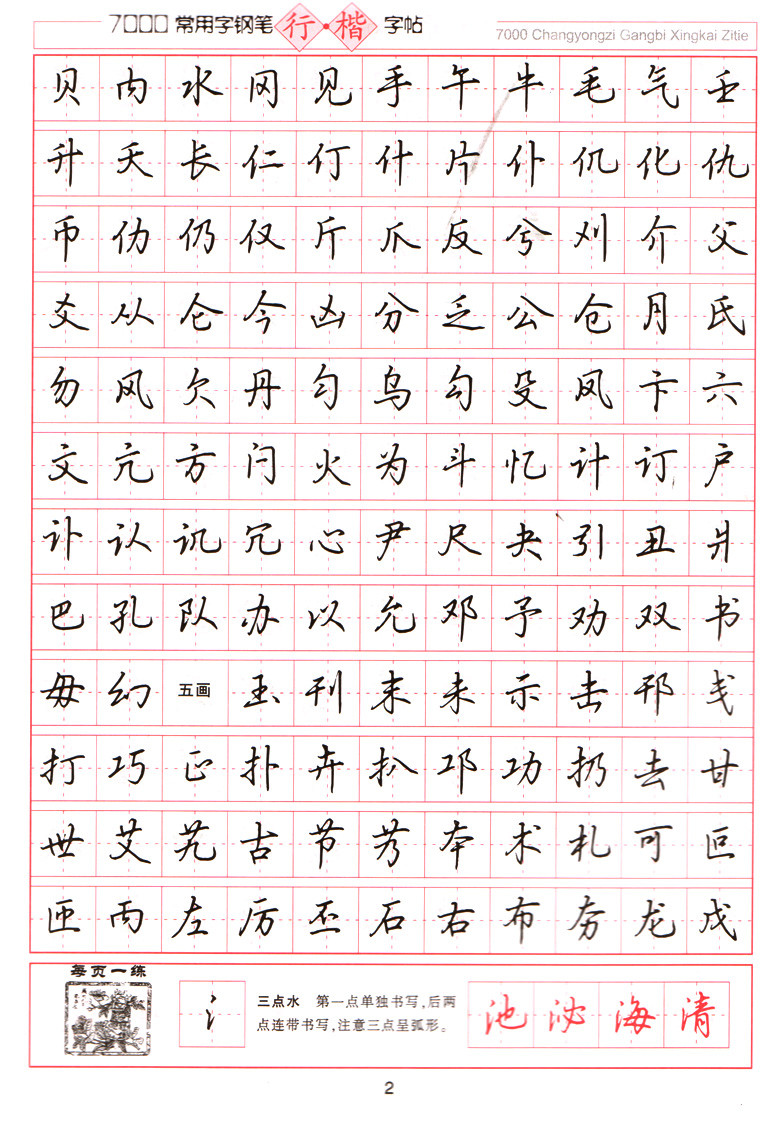 7000常用字钢笔行·楷字帖
7000 Changyongzi Gangbi Xingkai Zitie
贝内水冈见手午牛毛气壬
升夭长仁仃什片仆仉化仇
币仂仍仅斤爪反兮刈介父
爻从仑今凶分乏公仓月氏
勿风欠丹匀乌勾殳凤卞六
文亢方闩火为斗忆计订户
讣认讥冗心尹尺夬引丑爿
巴孔队办以允邓予劝双书
毋幻五画玉刊末未示击邗戋
打巧正扑卉扒邛功扔去甘
世艾艽古节艿本术札可叵
匝丙左厉丕石右布夯龙戊
每页一练
氵
三点水 第一点单独书写,后两
点连带书写,注意三点呈弧形。
池泌海清
2